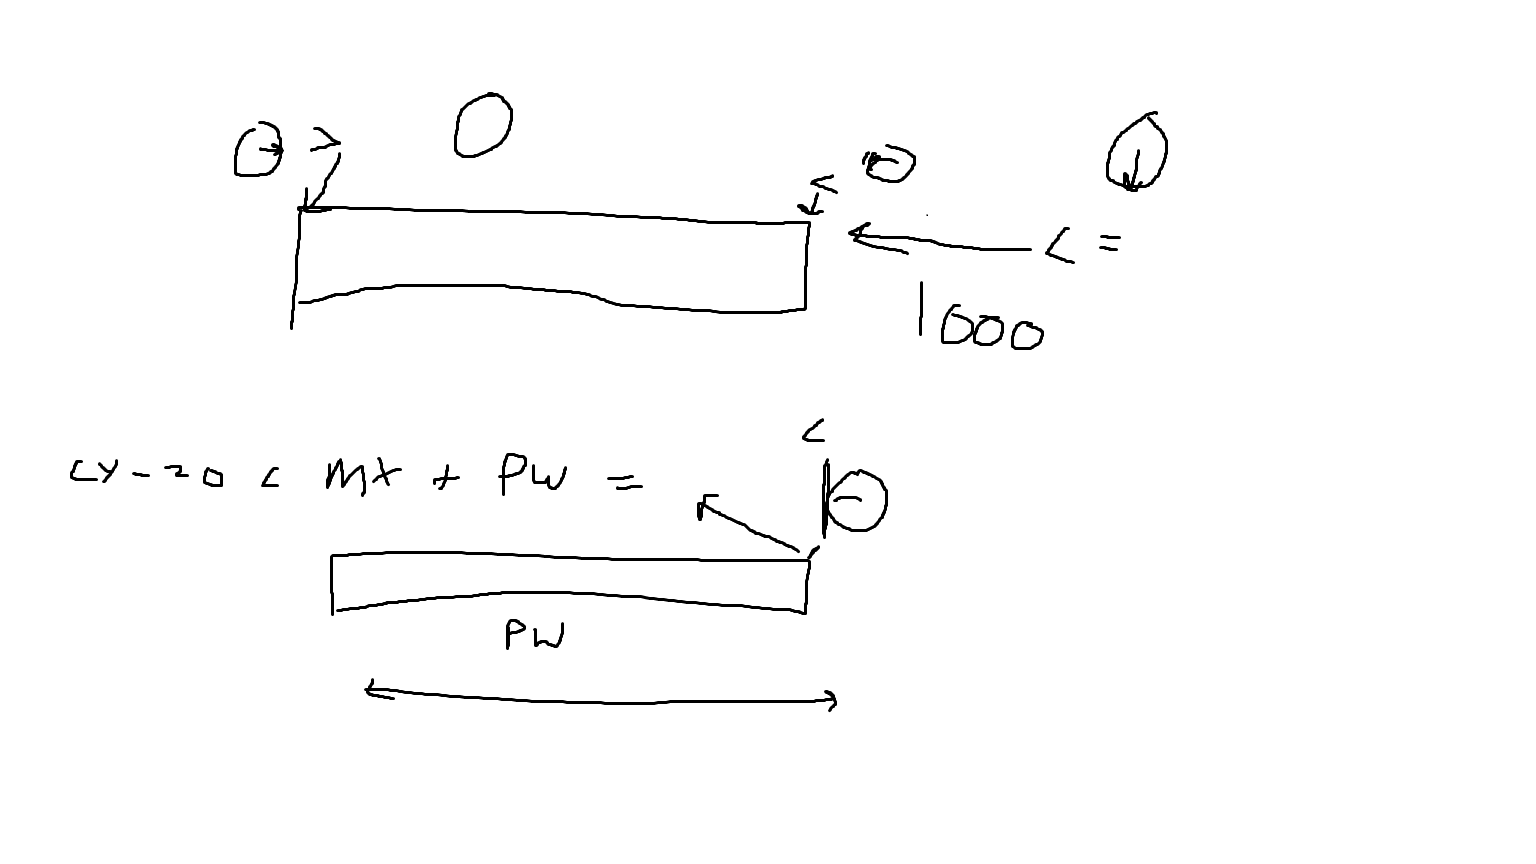 >
<
< =
1000
<
cy - 20 < mx + PW =
PW